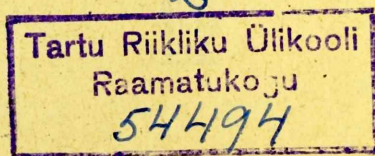 Tartu Riikliku Ülikooli
Raamatukogu
54494